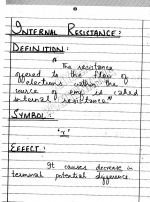 INTERNAL RESISTANCE:
DEFINITION:
" The resistance
offered to the flow of
electrons within the
source of emf is called
internal resistance."
SYMBOL:
"r"
EFFECT:
It causes decrease in
terminal potential difference.